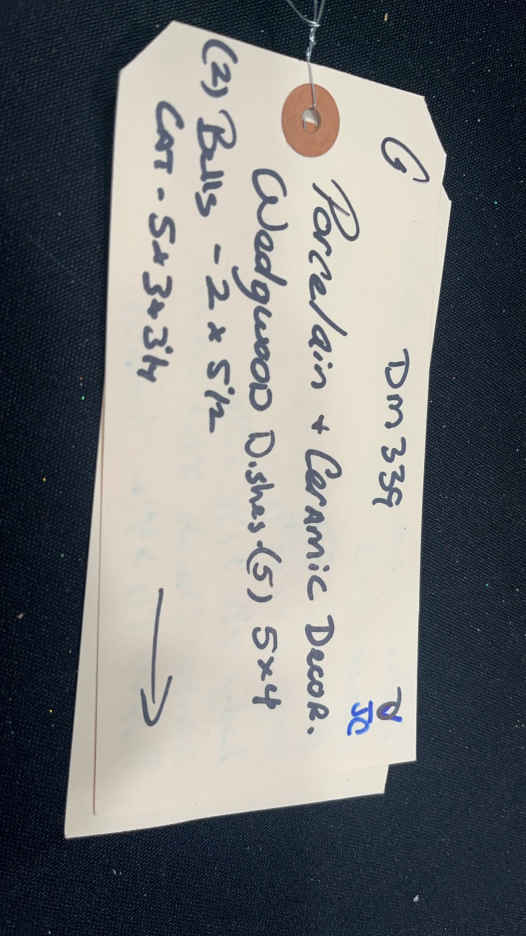 G DM339
JC
Porcelain + Ceramic Decor.
Wedgwood Dishes-(5) 5x4
(2) Bells - 2 x 5 1/2
CAT - 5x3x3 1/4